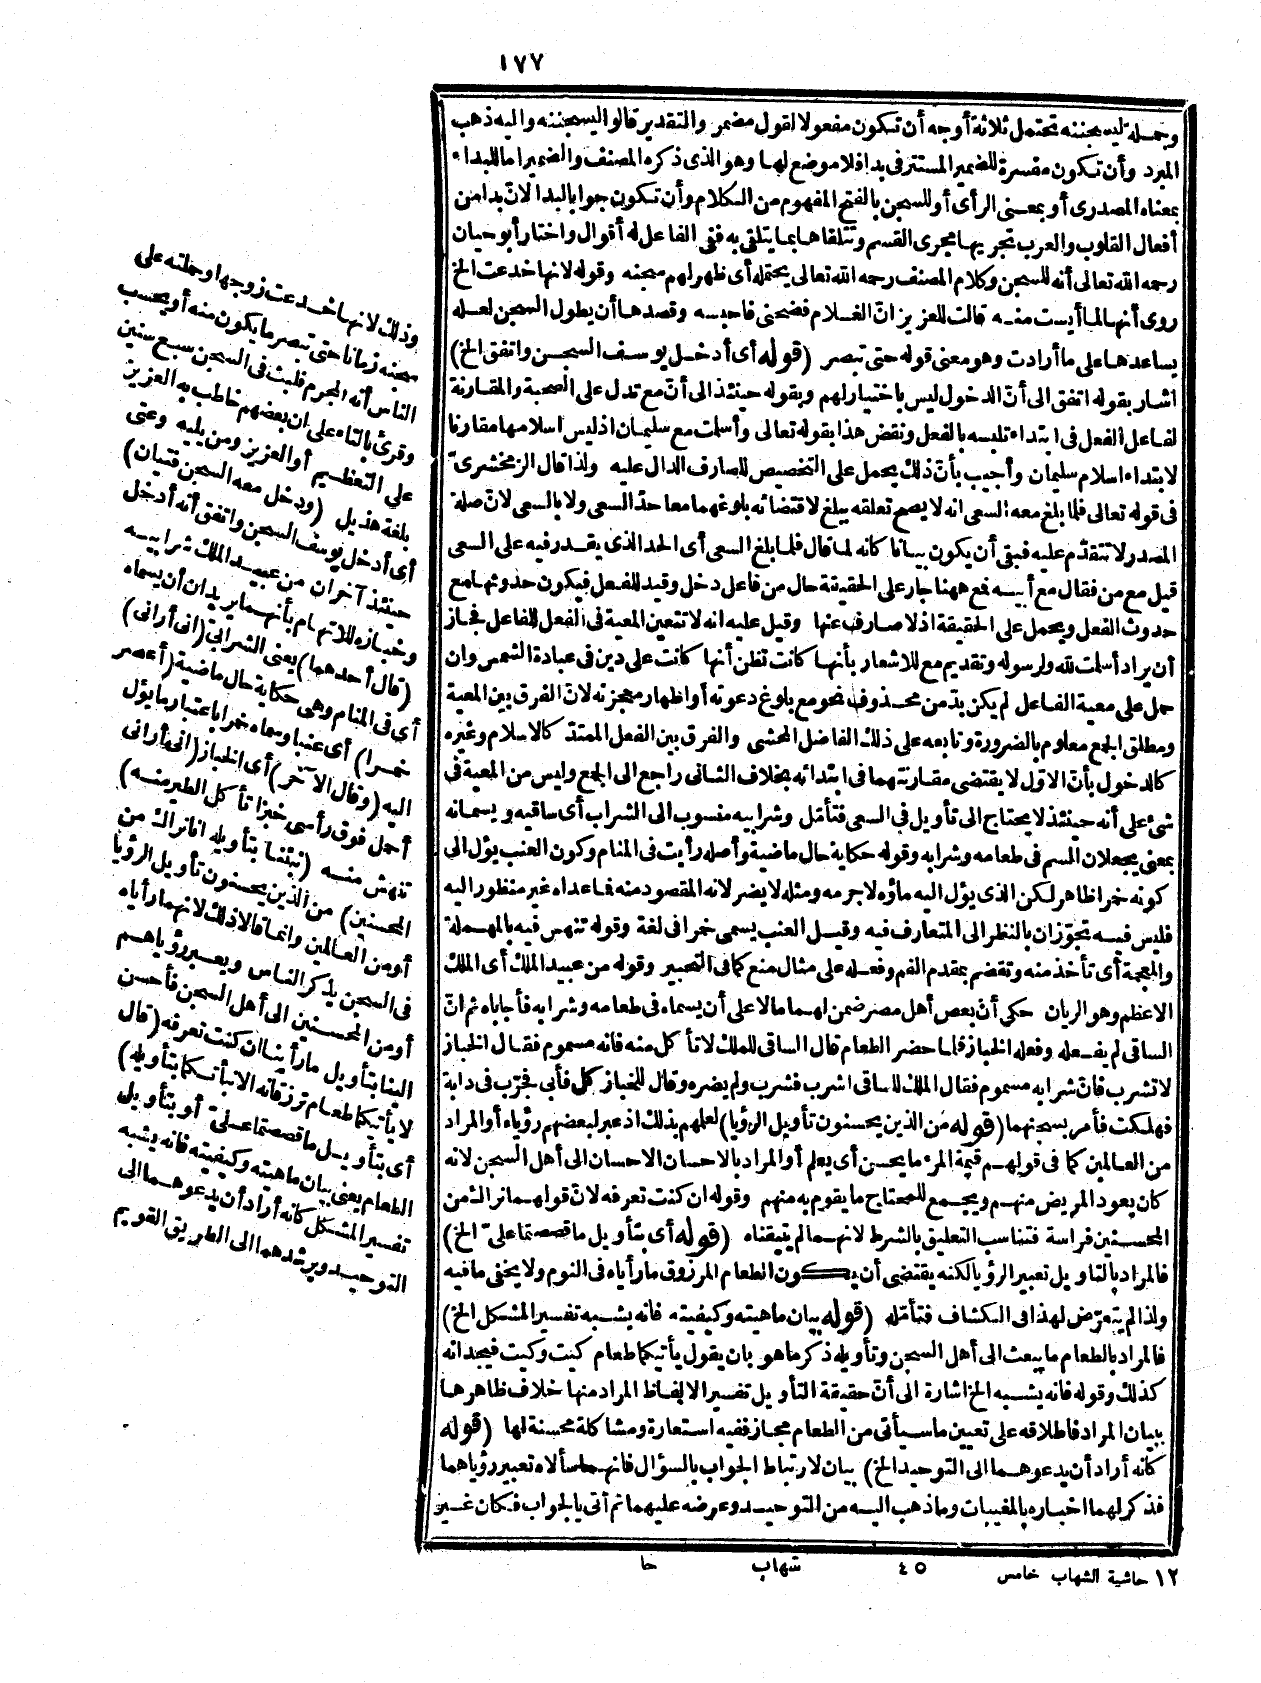 ١٧٧
وجملة ليسجننه تحتمل ثلاثة أوجه أن تكون مفعولا لقول مضمر والتقدير قالوا ليسجننه واليه ذهب
المبرد وأن تكون مفسرة للضمير المستتر فى بدا فلا موضع لها وهو الذى ذكره المصنف والضمير اما للبداء
بمعناه المصدرى أو بمعنى الرأى أو للسجن بالفتح المفهوم من الكلام وأن تكون جوابا لبدا لانّ بدا من
أفعال القلوب والعرب تجريها مجرى القسم وتتلقاها بما يتلقى به ففى الفاعل له أقوال واختار أبوحيان
رحمه الله تعالى أنه للسجن وكلام المصنف رحمه الله تعالى يحتمله أى ظهر لهم سجنه وقوله لانها خدعت الخ
روى أنها لما أيست منه قالت للعزيز انّ الغلام فضحنى فاحبسه وقصدها أن يطول السجن لعله
يساعدها على ما أرادت وهو معنى قوله حتى تبصر (قوله أى أدخل يوسف السجن واتفق الخ)
اشار بقوله اتفق الى أنّ الدخول ليس باختيار لهم وبقوله حينئذ الى أنّ مع تدل على الصحبة والمقارنة
لفاعل الفعل فى ابتداء تلبسه بالفعل ونقض هذا بقوله تعالى وأسلمت مع سليمان اذ ليس اسلامها مقارنا
لابتداء اسلام سليمان وأجيب بأنّ ذلك يحمل على التخصيص للصارف الدال عليه ولذا قال الزمخشرىّ
فى قوله تعالى فلما بلغ معه السعى انه لا يصح تعلقه ببلغ لاقتضائه بلوغهما معا حدّ السعى ولا بالسعى لانّ صلة
المصدر لا تتقدّم عليه فبقى أن يكون بيانا كانه لما قال فلما بلغ السعى أى الحد الذى يقدر فيه على السعى
قيل مع من فقال مع أبيه فمع ههنا جار على الحقيقة حال من فاعل دخل وقيد للفعل فيكون حدوثها مع
حدوث الفعل ويحمل على الحقيقة اذ لا صارف عنها وقيل عليه انه لا تتعين المعية فى الفعل للفاعل فجاز
أن يراد أسلمت لله ولرسوله وتقديم مع للاشعار بأنها كانت تظن أنها كانت على دين فى عبادة الشمس وان
حمل على معية الفاعل لم يكن بدّ من محذوف نحو مع بلوغ دعوته أو اظهار معجزته لانّ الفرق بين المعية
ومطلق الجمع معلوم بالضرورة وتابعه على ذلك الفاضل المحشى والفرق بين الفعل الممتدّ كالاسلام وغيره
كالدخول بأنّ الاوّل لا يقتضى مقارنتهما فى ابتدائه بخلاف الثانى راجع الى الجمع وليس من المعية فى
شئ على أنه حينئذ لا يحتاج الى تأويل فى السعى فتأمّل وشرابيه منسوب الى الشراب أى ساقيه ويسمانه
بمعنى يجعلان السم فى طعامه وشرابه وقوله حكاية حال ماضية وأصله رأيت فى المنام وكون العنب يؤل الى
كونه خمرا ظاهر لكن الذى يؤل اليه ماؤه لا جرمه ومثله لا يضر لانه المقصود منه فاعداه غير منظور اليه
فليس فيه تجوّزان بالنظر الى المتعارف فيه وقيل العنب يسمى خمرا فى لغة وقوله تنهس فيه بالمهملة
والمعجمة أى تأخذ منه وتقضم بمقدم الفم وفعله على مثال منع كما فى التعبير وقوله من عبيد الملك أى الملك
الاعظم وهو الريان حكى أنّ بعض أهل مصر ضمن لهما مالا على أن يسماه فى طعامه وشرابه فأجاباه ثم انّ
الساقى لم يفعله وفعله الخباز فلما حضر الطعام قال الساقى للملك لا تأكل منه فانه مسموم فقال الخباز
لا تشرب فانّ شرابه مسموم فقال الملك للساقى اشرب فشرب ولم يضره وقال للخباز كل فأبى فجرّب فى دابة
فهلكت فأمر بسجنهما (قوله من الذين يحسنون تأويل الرؤيا) لعلهم بذلك اذ عبر لبعضهم رؤياه أو المراد
من العالمين كما فى قولهم قيمة المرء ما يحسن أى يعلم أو المراد بالاحسان الاحسان الى أهل السجن لانه
كان يعود المريض منهم ويجمع للمحتاج ما يقوم به منهم وقوله ان كنت تعرفه لانّ قولهما نراك من
المحسنين فراسة فتناسب التعليق بالشرط لانهما لم يتيقناه (قوله أى بتأويل ما قصصتما علىّ الخ)
فالمراد بالتأويل تعبير الرؤيا لكنه يقتضى أن يكون الطعام المرزوق ما رأياه فى النوم ولا يخفى ما فيه
ولذا لم يتعرّض لهذا فى الكشاف فتأمّله (قوله بيان ماهيته وكيفيته فانه يشبه تفسير المشكل الخ)
فالمراد بالطعام ما يبعث الى أهل السجن وتأويله ذكر ما هو بان يقول يأتيكما طعام كيت وكيت فيجدانه
كذلك وقوله فانه يشبه الخ اشارة الى أنّ حقيقة التأويل تفسير الالفاظ المراد منها خلاف ظاهرها
ببيان المراد فاطلاقه على تعيين ما سيأتى من الطعام مجاز ففيه استعارة ومشاكلة محسنة لها (قوله
كأنه أراد أن يدعوهما الى التوحيد الخ) بيان لارتباط الجواب بالسؤال فانهما سألاه تعبير رؤياهما
فذكر لهما اخباره بالمغيبات وما ذهب اليه من التوحيد وعرضه عليهما ثم أتى بالجواب فكان غير
وذلك لانها خدعت زوجها وحملته على
سجنه زمانا حتى تبصر ما يكون منه أو يحسب
الناس أنه المجرم فلبث فى السجن سبع سنين
وقرئ بالتاء على ان بعضهم خاطب به العزيز
على التعظيم أو العزيز ومن يليه وعتى
بلغة هذيل (ودخل معه السجن فتيان)
أى أدخل يوسف السجن واتفق أنه أدخل
حينئذ آخران من عبيد الملك شرابيه
وخبازه للاتهام بأنهما يريدان أن يسماه
(قال أحدهما) يعنى الشرابىّ (انى أرانى)
أى فى المنام وهى حكاية حال ماضية (أعصر
خمرا) أى عنبا وسماه خمرا باعتبار ما يؤل
اليه (وقال الآخر) أى الخباز (انى أرانى
أحمل فوق رأسى خبزا تأكل الطير منه)
تنهش منه (نبئنا بتأويله انا نراك من
المحسنين) من الذين يحسنون تأويل الرؤيا
أو من العالمين وانما قالا ذلك لانهما رأياه
فى السجن يذكر الناس ويعبر رؤياهم
أو من المحسنين الى أهل السجن فأحسن
الينا بتأويل ما رأينا ان كنت تعرفه (قال
لا يأتيكما طعام ترزقانه الا نبأتكما بتأويله)
أى بتأويل ما قصصتما علىّ أو بتأويل
الطعام يعنى بيان ماهيته وكيفيته فانه يشبه
تفسير المشكل كانه أراد أن يدعوهما الى
التوحيد ويرشدهما الى الطريق القويم
١٢ حاشية الشهاب خامس
٤٥
شهاب
حا